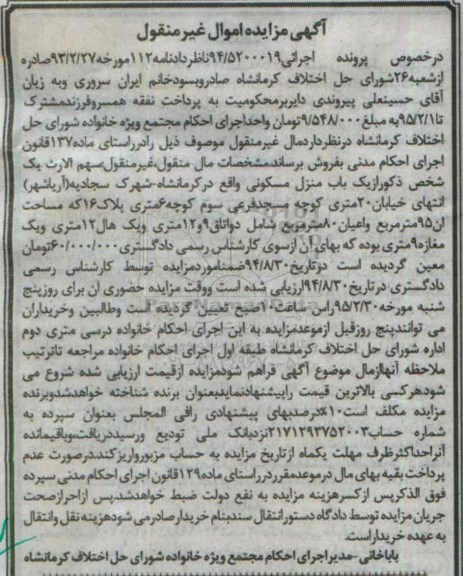 آگهی مزایده اموال غیر منقول
درخصوص پرونده اجرائی۹۴/۵۲۰۰۰۱۹ناظردادنامه۱۱۲مورخه۹۳/۲/۲۷صادره
ازشعبه۲۶شورای حل اختلاف کرمانشاه صادروبسودخانم ایران سروری وبه زیان
آقای حسینعلی پیروندی دایربرمحکومیت به پرداخت نفقه همسروفرزندمشترک
تا۹۵/۲/۱به مبلغ۹/۵۴۸/۰۰۰تومان واحداجرای احکام مجتمع ویژه خانواده شورای حل
اختلاف کرمانشاه درنظرداردمال غیرمنقول موصوف ذیل رادرراستای ماده۱۳۷قانون
اجرای احکام مدنی بفروش برساندمشخصات مال منقول،غیرمنقول،سهم الارث یک
شخص ذکورازیک باب منزل مسکونی واقع درکرمانشاه-شهرک سجادیه(آریاشهر)
انتهای خیابان۲۰متری کوچه مسجدفرعی سوم کوچه۶متری پلاک۱۶که مساحت
ان۹۵مترمربع واعیان۸۰مترمربع شامل دواتاق۹و۱۲متری ویک هال۱۲متری ویک
مغازه۹متری بوده که بهای آن ازسوی کارشناس رسمی دادگستری۶۰/۰۰۰/۰۰۰تومان
معین گردیده است درتاریخ۹۴/۸/۳۰ضمناموردمزایده توسط کارشناس رسمی
دادگستری درتاریخ۹۴/۸/۳۰ارزیابی شده است ووقت مزایده حضوری ان برای روزپنج
شنبه مورخه۹۵/۲/۳۰راس ساعت۱۰صبح تعیین گردیده است وطالبین وخریداران
می توانندپنج روزقبل ازموعدمزایده به این اجرای احکام خانواده درسی متری دوم
اداره شورای حل اختلاف کرمانشاه طبقه اول اجرای احکام خانواده مراجعه تاترتیب
ملاحظه آنهاازمال موضوع آگهی فراهم شودمزایده ازقیمت ارزیابی شده شروع می
شودهرکسی بالاترین قیمت راپیشنهادنمایدبعنوان برنده شناخته خواهدشدوبرنده
مزایده مکلف است۱۰٪درصدبهای پیشنهادی رافی المجلس بعنوان سپرده به
شماره حساب۲۱۷۱۲۹۳۷۵۲۰۰۳نزدبانک ملی تودیع ورسیددریافت،وباقیمانده
آنراحداکثرظرف مهلت یکماه ازتاریخ مزایده به حساب مزبورواریزکند.درصورت عدم
پرداخت بقیه بهای مال درموعدمقرردرراستای ماده۱۲۹قانون اجرای احکام مدنی سپرده
فوق الذکرپس ازکسرهزینه مزایده به نفع دولت ضبط خواهدشد.پس ازاحرازصحت
جریان مزایده توسط دادگاه دستورانتقال سندبنام خریدارصادرمی شودهزینه نقل وانتقال
به عهده خریداراست.
باباخانی-مدیراجرای احکام مجتمع ویژه خانواده شورای حل اختلاف کرمانشاه